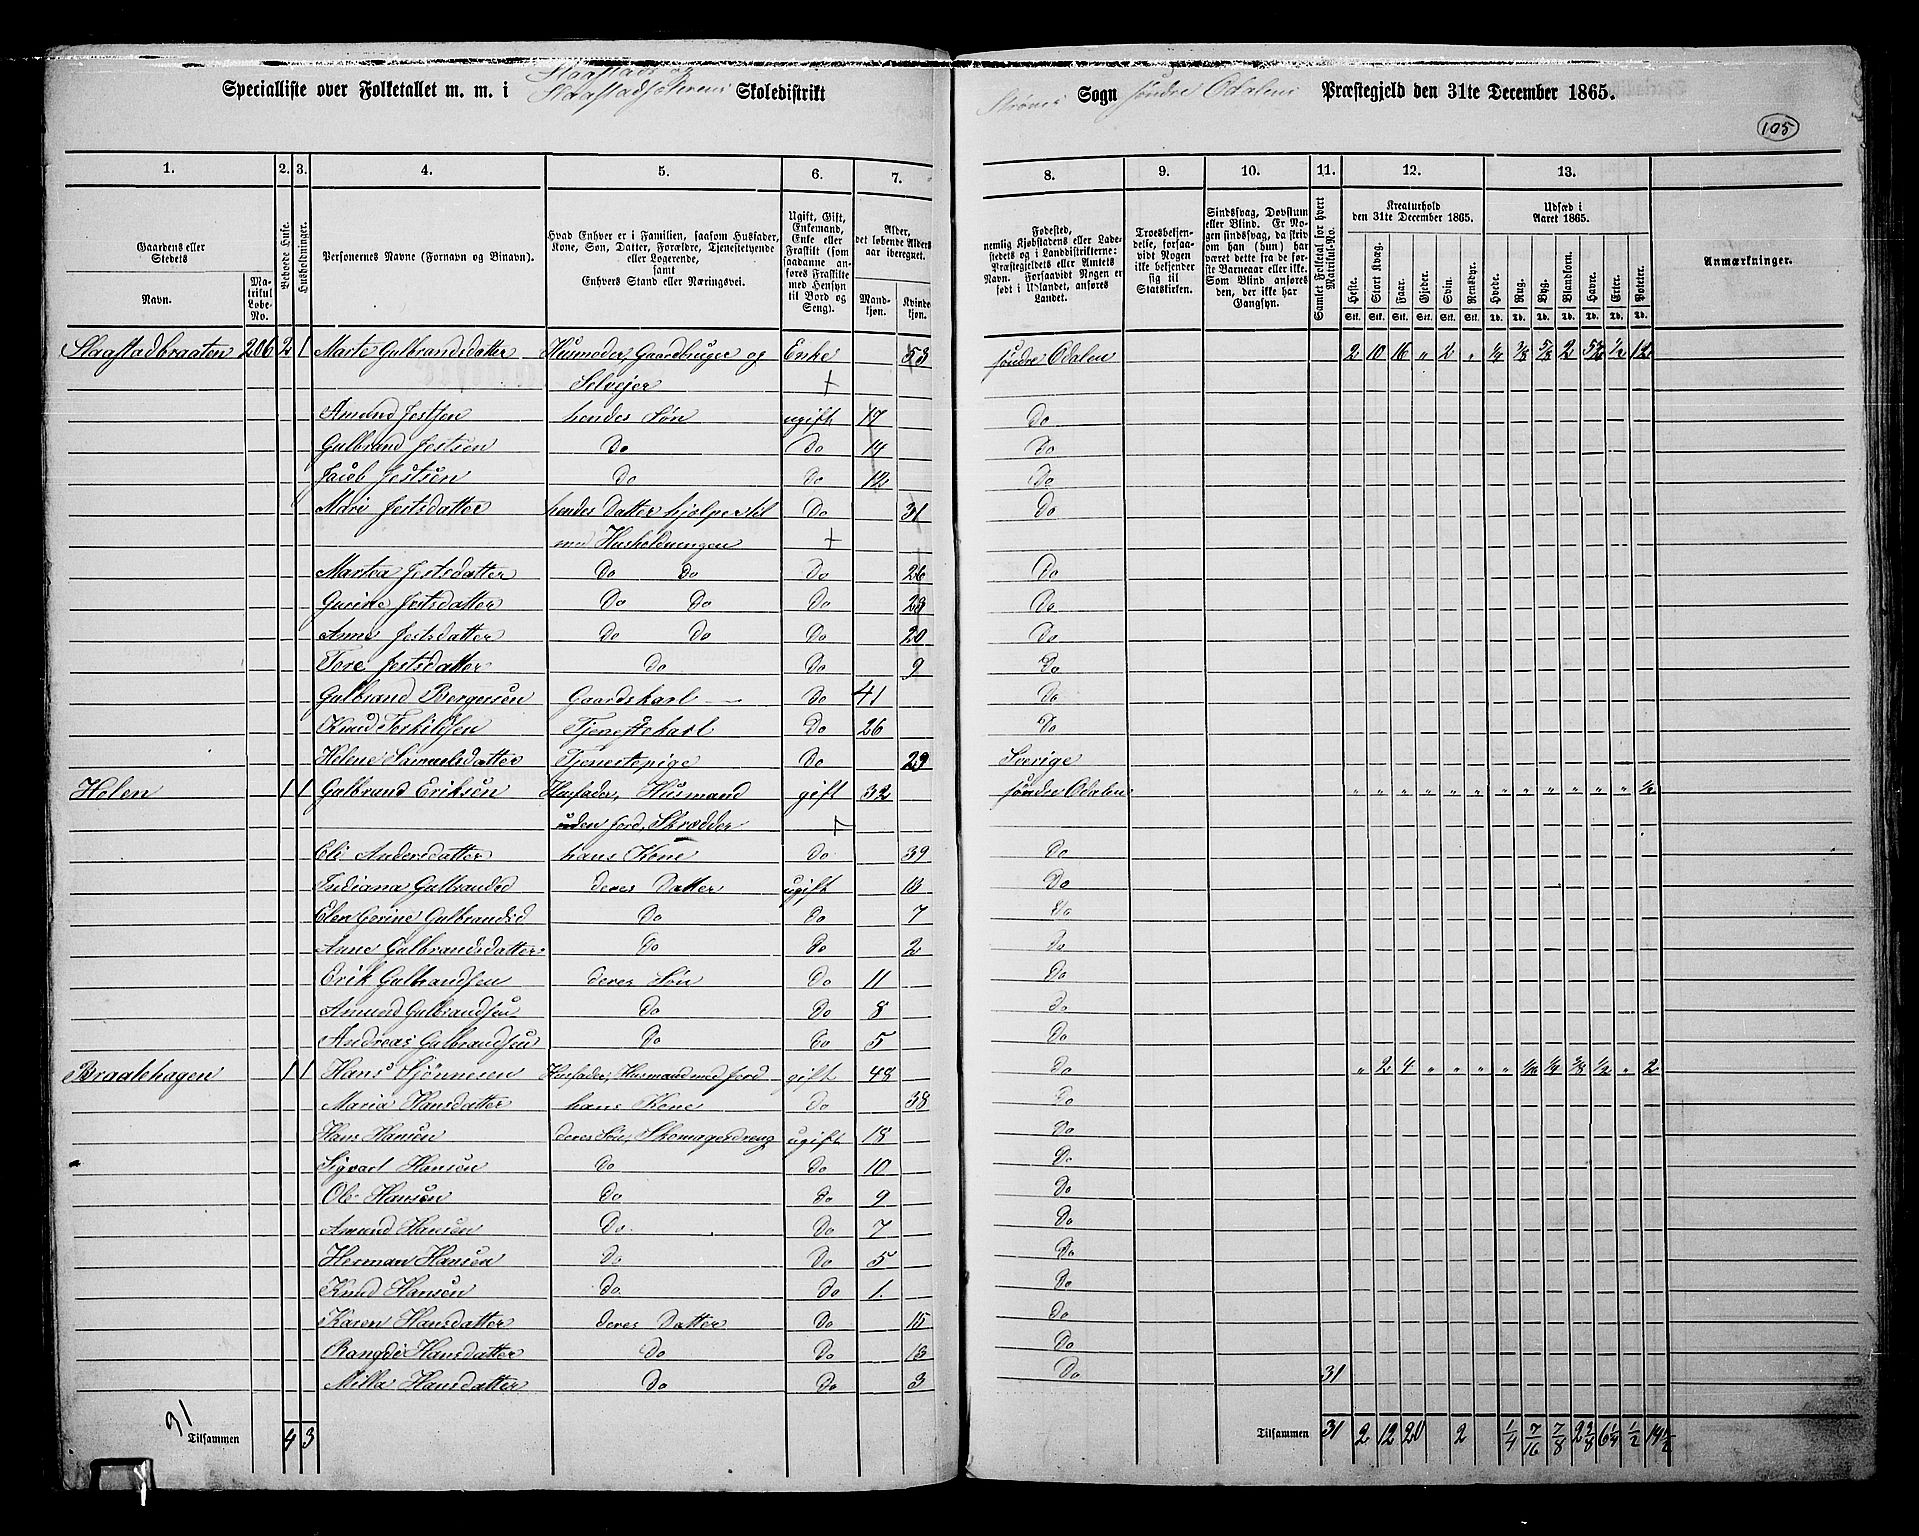 Staastads og
Specialliste over Folketallet m. m. i Staastadsæterens Skoledistrikt Strøms Sogn søndre Odalens Præstegjeld den 31te December 1865.
105
1. 2. 3. 4. 5. 6. 7. 8. 9. 10. 11. 12. 13.
Gaardens eller Stedets
Navn.
Matrikul Løbe-No.
Beboede Huse.
Husholdninger.
Personernes Navne (Fornavn og Binavn).
Hvad Enhver er i Familien, saasom Husfader, Kone, Søn, Datter, Forældre, Tjenestetyende eller Logerende, samt Enhvers Stand eller Næringsvei.
Ugift, Gift, Enkemand, Enke eller Fraskilt (som saadanne anføres Fraskilte med Hensyn til Bord og Seng).
Alder, det løbende Alders-aar iberegnet.
Mandkjøn. Kvindekjøn.
Fødested, nemlig Kjøbstadens eller Ladestedets og i Landdistrikterne: Præstegjeldets eller Amtets Navn. Forsaavidt Nogen er født i Udlandet, anføres Landet.
Troesbekjendelse, forsaavidt Nogen ikke bekjender sig til Statskirken.
Sindssvag, Døvstum eller Blind. Er Nogen sindssvag, da skrives om han (hun) har været dette fra de første Barneaar eller ikke. Som Blind anføres den, der ikke har Gangsyn.
Samlet Folketal for hvert Matrikul-No.
Kreaturhold den 31te December 1865.
Heste. Stort Kvæg. Faar. Gjeder. Svin. Rensdyr.
Udsæd i Aaret 1865.
Hvede. Rug. Byg. Blandkorn. Havre. Erter. Poteter.
Anmærkninger.
Stk. Stk. Stk. Stk. Stk. Stk. Td. Td. Td. Td. Td. Td. Td.
Staastadbraaten 206 2 1 Marte Gulbrandsdatter Husmoder, Gaardbruger og Enke 53 søndre Odalen 2 10 16 " 2 " 1/4 3/8 5/8 2 5 3/4 1/2 12
Selvejer +
Amund Jestsen hendes Søn ugift 17 Do
Gulbrand Jestsen Do Do 14 Do
Jacob Jestsen Do Do 12 Do
Mari Jestsdatter hendes Datter hjelper til Do 31 Do
med Husholdningen +
Martea Jestsdatter Do Do Do 26 Do
Gurine Jestsdatter Do Do Do 23 Do
Anne Jestsdatter Do Do Do 20 Do
Tore Jestsdatter Do Do 9 Do
Gulbrand Bergersøn Gaardskarl Do 41 Do
Knud Terkildsen Tjenestekarl Do 26 Do
Helene Samuelsdatter Tjenestepige Do 29 Sverige
Holen 1 1 Gulbrand Eriksøn Husfader, Husmand gift 32 søndre Odalen " " " " " " " " " " " " 1/2
uden Jord, Skrædder +
Eli Andersdatter hans Kone Do 39 Do
Indiana Gulbrandsd deres Datter ugift 13 Do
Elen Gorine Gulbrandsd Do Do 7 Do
Anne Gulbrandsdatter Do Do 2 Do
Erik Gulbrandsen deres Søn Do 11 Do
Amund Gulbrandsen Do Do 8 Do
Andreas Gulbrandsen Do Do 5 Do
Braatehagen 1 1 Hans Sjønnesen Husfader, Husmand med Jord gift 48 Do " 2 4 " " " " 1/16 1/4 3/8 1/2 " 2
Maria Hansdatter hans Kone Do 38 Do
Hans Hansøn deres Søn, Skomagerdreng ugift 18 Do
Sigvart Hansøn Do Do 10 Do
Ole Hansøn Do Do 9 Do
Amund Hansøn Do Do 7 Do
Herman Hansøn Do Do 5 Do
Knud Hansøn Do Do 1 Do
Karen Hansdatter deres Datter Do 15 Do
Rangdi Hansdatter Do Do 13 Do
Milla Hansdatter Do Do 3 Do 31
31
Tilsammen 4 3 Tilsammen 31 2 12 20 2 1/4 7/16 7/8 2 3/8 6 1/4 1/2 14 1/2